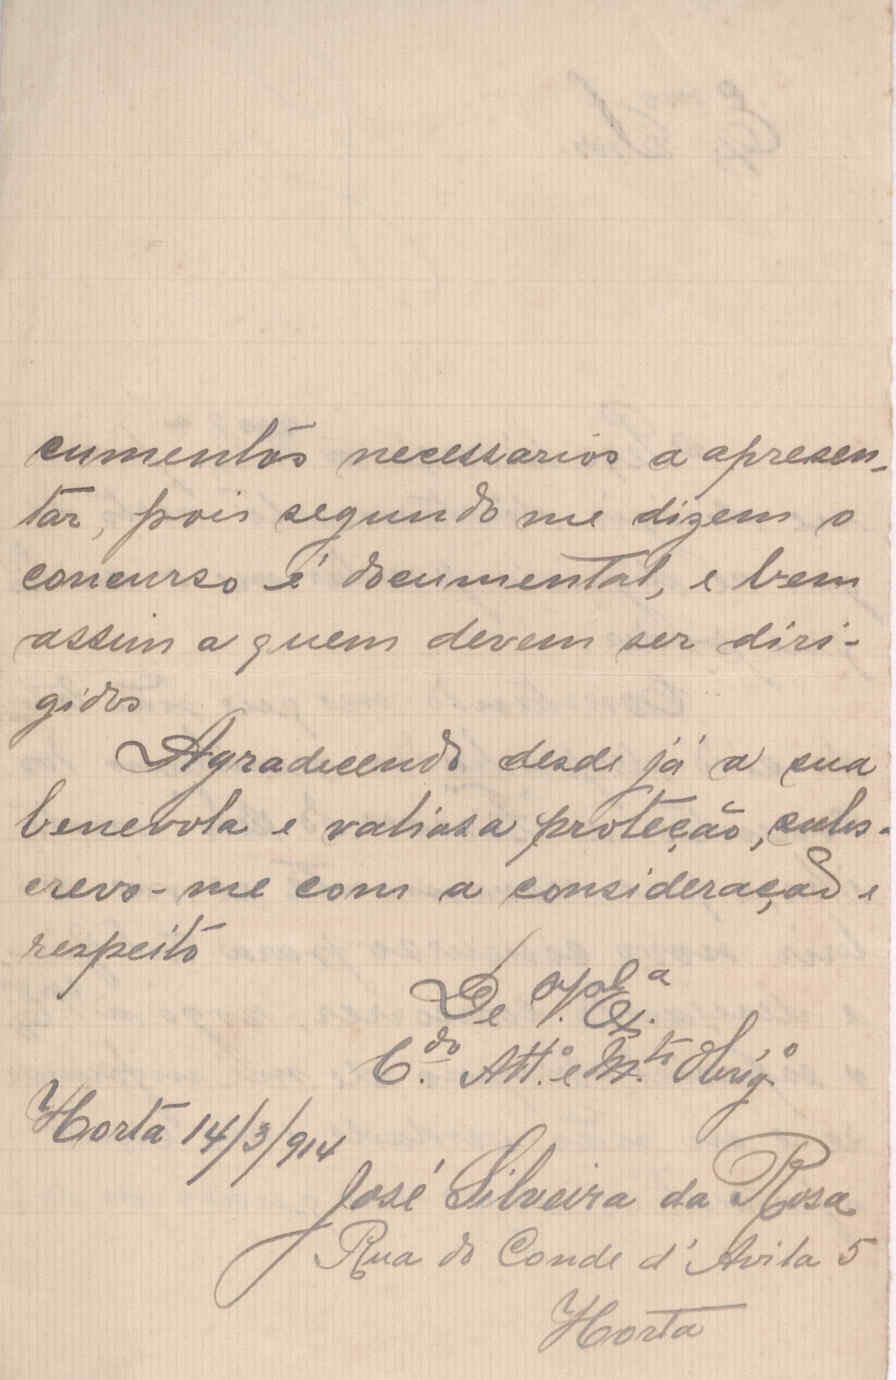 cumentos necessarios a apresen-
tar, pois segundo me dizem o
concurso é documental, e bem
assim a quem devem ser diri-
gidos
Agradecendo desde já a sua
benevola e valiosa proteção, subs-
crevo-me com a consideração e
respeito
De V. Ex.ª
C.do Att.º e M.to Obrig.º
Horta 14/3/914
José Silveira da Rosa
Rua do Conde d'Avila 5
Horta